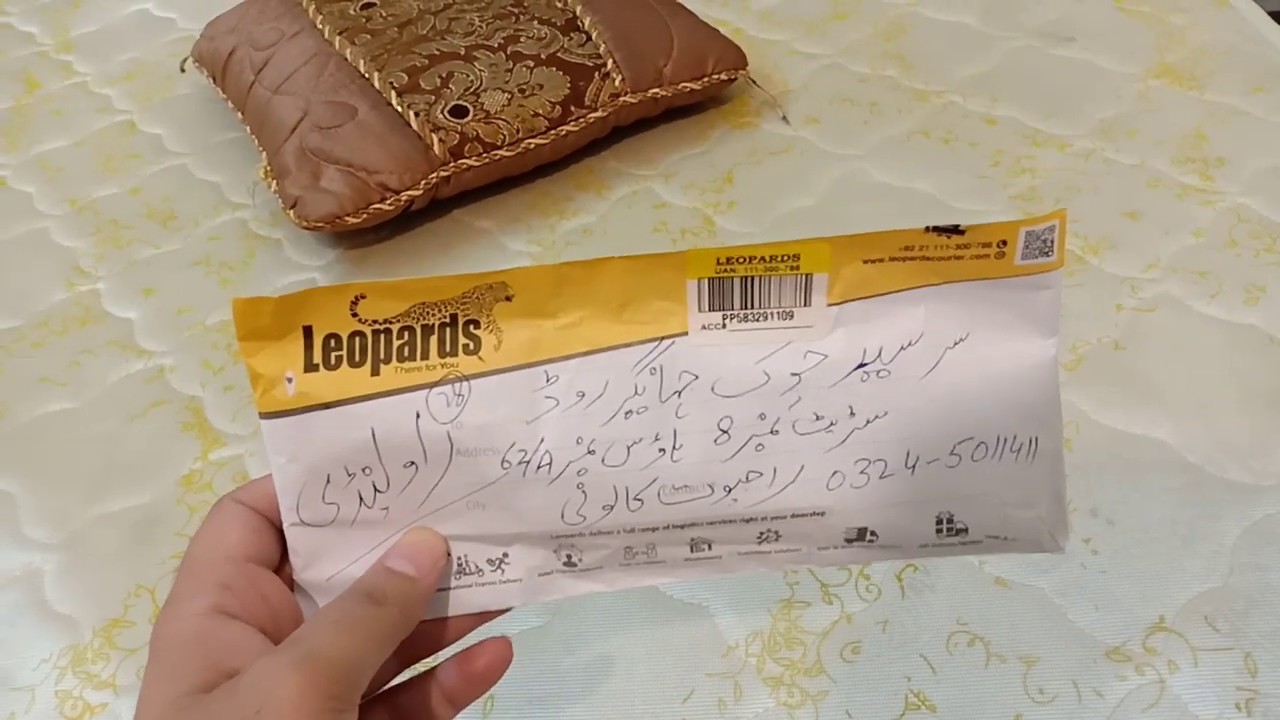 +92 21 111-300-786
www.leopardscourier.com
LEOPARDS
UAN: 111-300-786
PP583291109
ACC#
Leopards
There for You
28
سر سید چوک جہانگیر روڈ
To
سٹریٹ نمبر 8 ہاؤس نمبر 62/A
Address
راولپنڈی
0324-5011411 راجپوت کالونی
Contact
City
Leopards deliver a full range of logistics services right at your doorstep
International Express Delivery